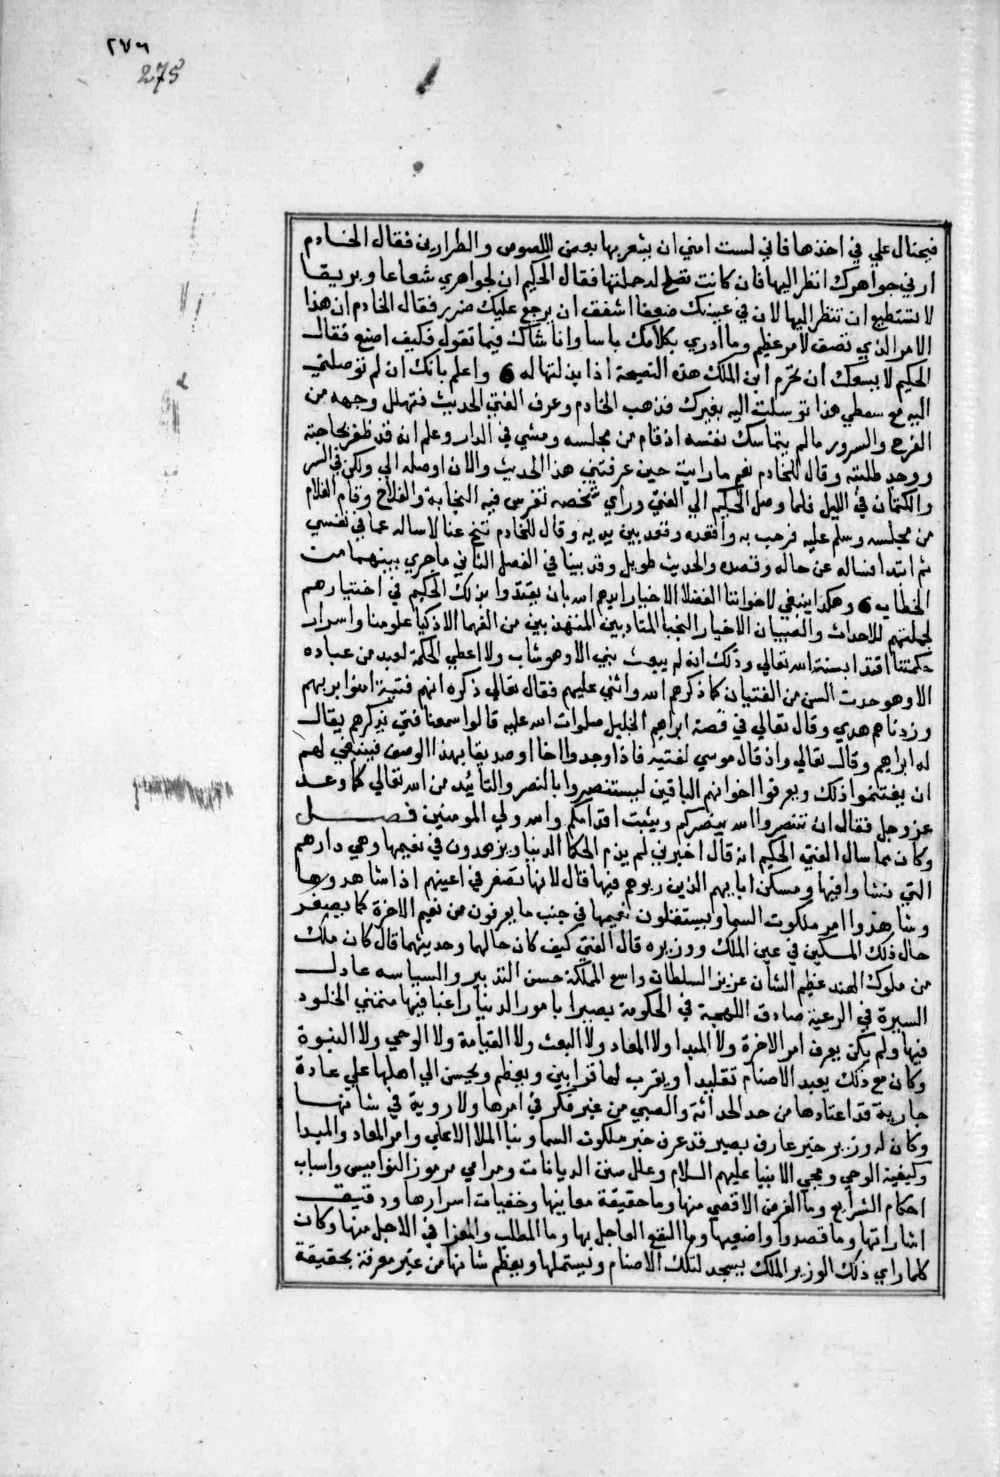 ٢٧٦
275
فيحتال علي في اخذها فاني لست امني ان يشعر بها بعض اللصوص والطرارين فقال الخادم
ارني جواهرك انظر اليها فان كانت تصلح له حملتها فقال الحكيم ان لجواهري شعاعا وبريقا
لا تستطيع ان تنظر اليها لان في عينيك ضعفا اشفق ان يرجع عليك ضرر فقال الخادم ان هذا
الامر الذي تصف لامر عظيم وما ادري بكلامك باسا وانا شاك فيما تقول فكيف اصنع فقال
الحكيم لا يسعك ان تحرم ابن الملك هذه النصيحة اذا بذلتها له واعلم بانك ان لم توصلني
اليه مع سفطي هذا توسلت اليه بغيرك فذهب الخادم وعرف الفتي الحديث فتهلل وجهه من
الفرح والسرور ما لم يتماسك نفسه اذ قام من مجلسه ومشي في الدار وعلم انه قد ظفر بحاجته
ووجد طلبته وقال للخادم نعم ما رايت حين عرفتني هذا الحديث والان اوصله الي ولكن في السر
والكتمان في الليل فلما وصل الحكيم الي الفتي وراي شخصه تفرس فيه النجابة والفلاح وقام الغلام
من مجلسه وسلم عليه فرحب به واقعده وقعد بين يديه وقال للخادم تنح عنا لاساله عما في نفسي
ثم ابتدا فساله عن حاله وقصده والحديث طويل وقد بينا في الفصل الثاني ما جري بينهما من
الخطاب وهكذا ينبغي لاخواننا الفضلا الاخيار ايدهم الله بان يقتدوا بذلك الحكيم في اختيارهم
لحكمتهم للاحداث والصبيان الاخيار النجبا المتادبين المتهذبين من الفهما الاذكيا علومنا واسرار
حكمتنا اقتدا بسنة الله تعالي وذلك انه لم يبعث نبي الا وهو شاب ولا اعطي الحكمة لعبد من عباده
الا وهو حدث السن من الفتيان كما ذكرهم الله واثني عليهم فقال تعالي ذكره انهم فتية امنوا بربهم
وزدناهم هدي وقال تعالي في قصة ابراهيم الخليل صلوات الله عليه قالوا سمعنا فتي يذكرهم يقال
له ابراهيم وقال تعالي واذ قال موسي لفتيه فاذا وجدوا اخا او صديقا بهذا الوصف فينبغي لهم
ان يغتنموا ذلك ويعرفوا اخوانهم الباقين ليستنصروا بالنصر والتائيد من الله تعالي كما وعد
عز وجل فقال ان تنصروا الله ينصركم ويثبت اقدامكم والله ولي المومنين فصل
وكان مما سال الفتي الحكيم ان قال اخبرني لم يذم الحكما الدنيا ويزهدون في نعيمها وهي دارهم
التي نشاوا فيها ومسكن ابايهم الذين ربوهم فيها قال لانها تصغر في اعينهم اذا شاهدوها
وشاهدوا امر ملكوت السما ويستقلون نعيمها في جنب ما يعرفون من نعيم الاخرة كما يصغر
حال ذلك المسكين في عين الملك ووزيره قال الفتي كيف كان حالهما وحديثهما قال كان ملك
من ملوك الهند عظيم الشان عزيز السلطان واسع المملكة حسن التدبير والسياسه عادل
السيرة في الرعية صادق اللهجة في الحكومة بصيرا بامور الدنيا راغبا فيها متمني الخلود
فيها ولم يكن يعرف امر الاخرة ولا المبدا ولا المعاد ولا البعث ولا القيامة ولا الوحي ولا النبوة
وكان مع ذلك يعبد الاصنام تقليدا ويقرب لها قرابين ويعظم ويحسن الي اهلها علي عادة
جارية قد اعتادها من حد الحداثة والصبي من غير فكر في امرها ولا روية في شانها
وكان له وزير خير عارف بصير قد عرف خبر ملكوت السما ونبا الملا الاعلي وامر المعاد والمبدا
وكيفية الوحي ومجي الانبيا عليهم السلام وعلل سنن الديانات ومرامي مرموز النواميس واسباب
احكام الشرايع وما الغرض الاقصي منها وما حقيقة معاينها وخفيات اسرارها ودقيق
اشاراتها وما قصدوا واضعيها وما النفع العاجل بها وما المطلب والجزا في الاجل منها وكان
كلما راي ذلك الوزير الملك يسجد لتلك الاصنام ويستملها ويعظم شانها من غير معرفة بحقيقة